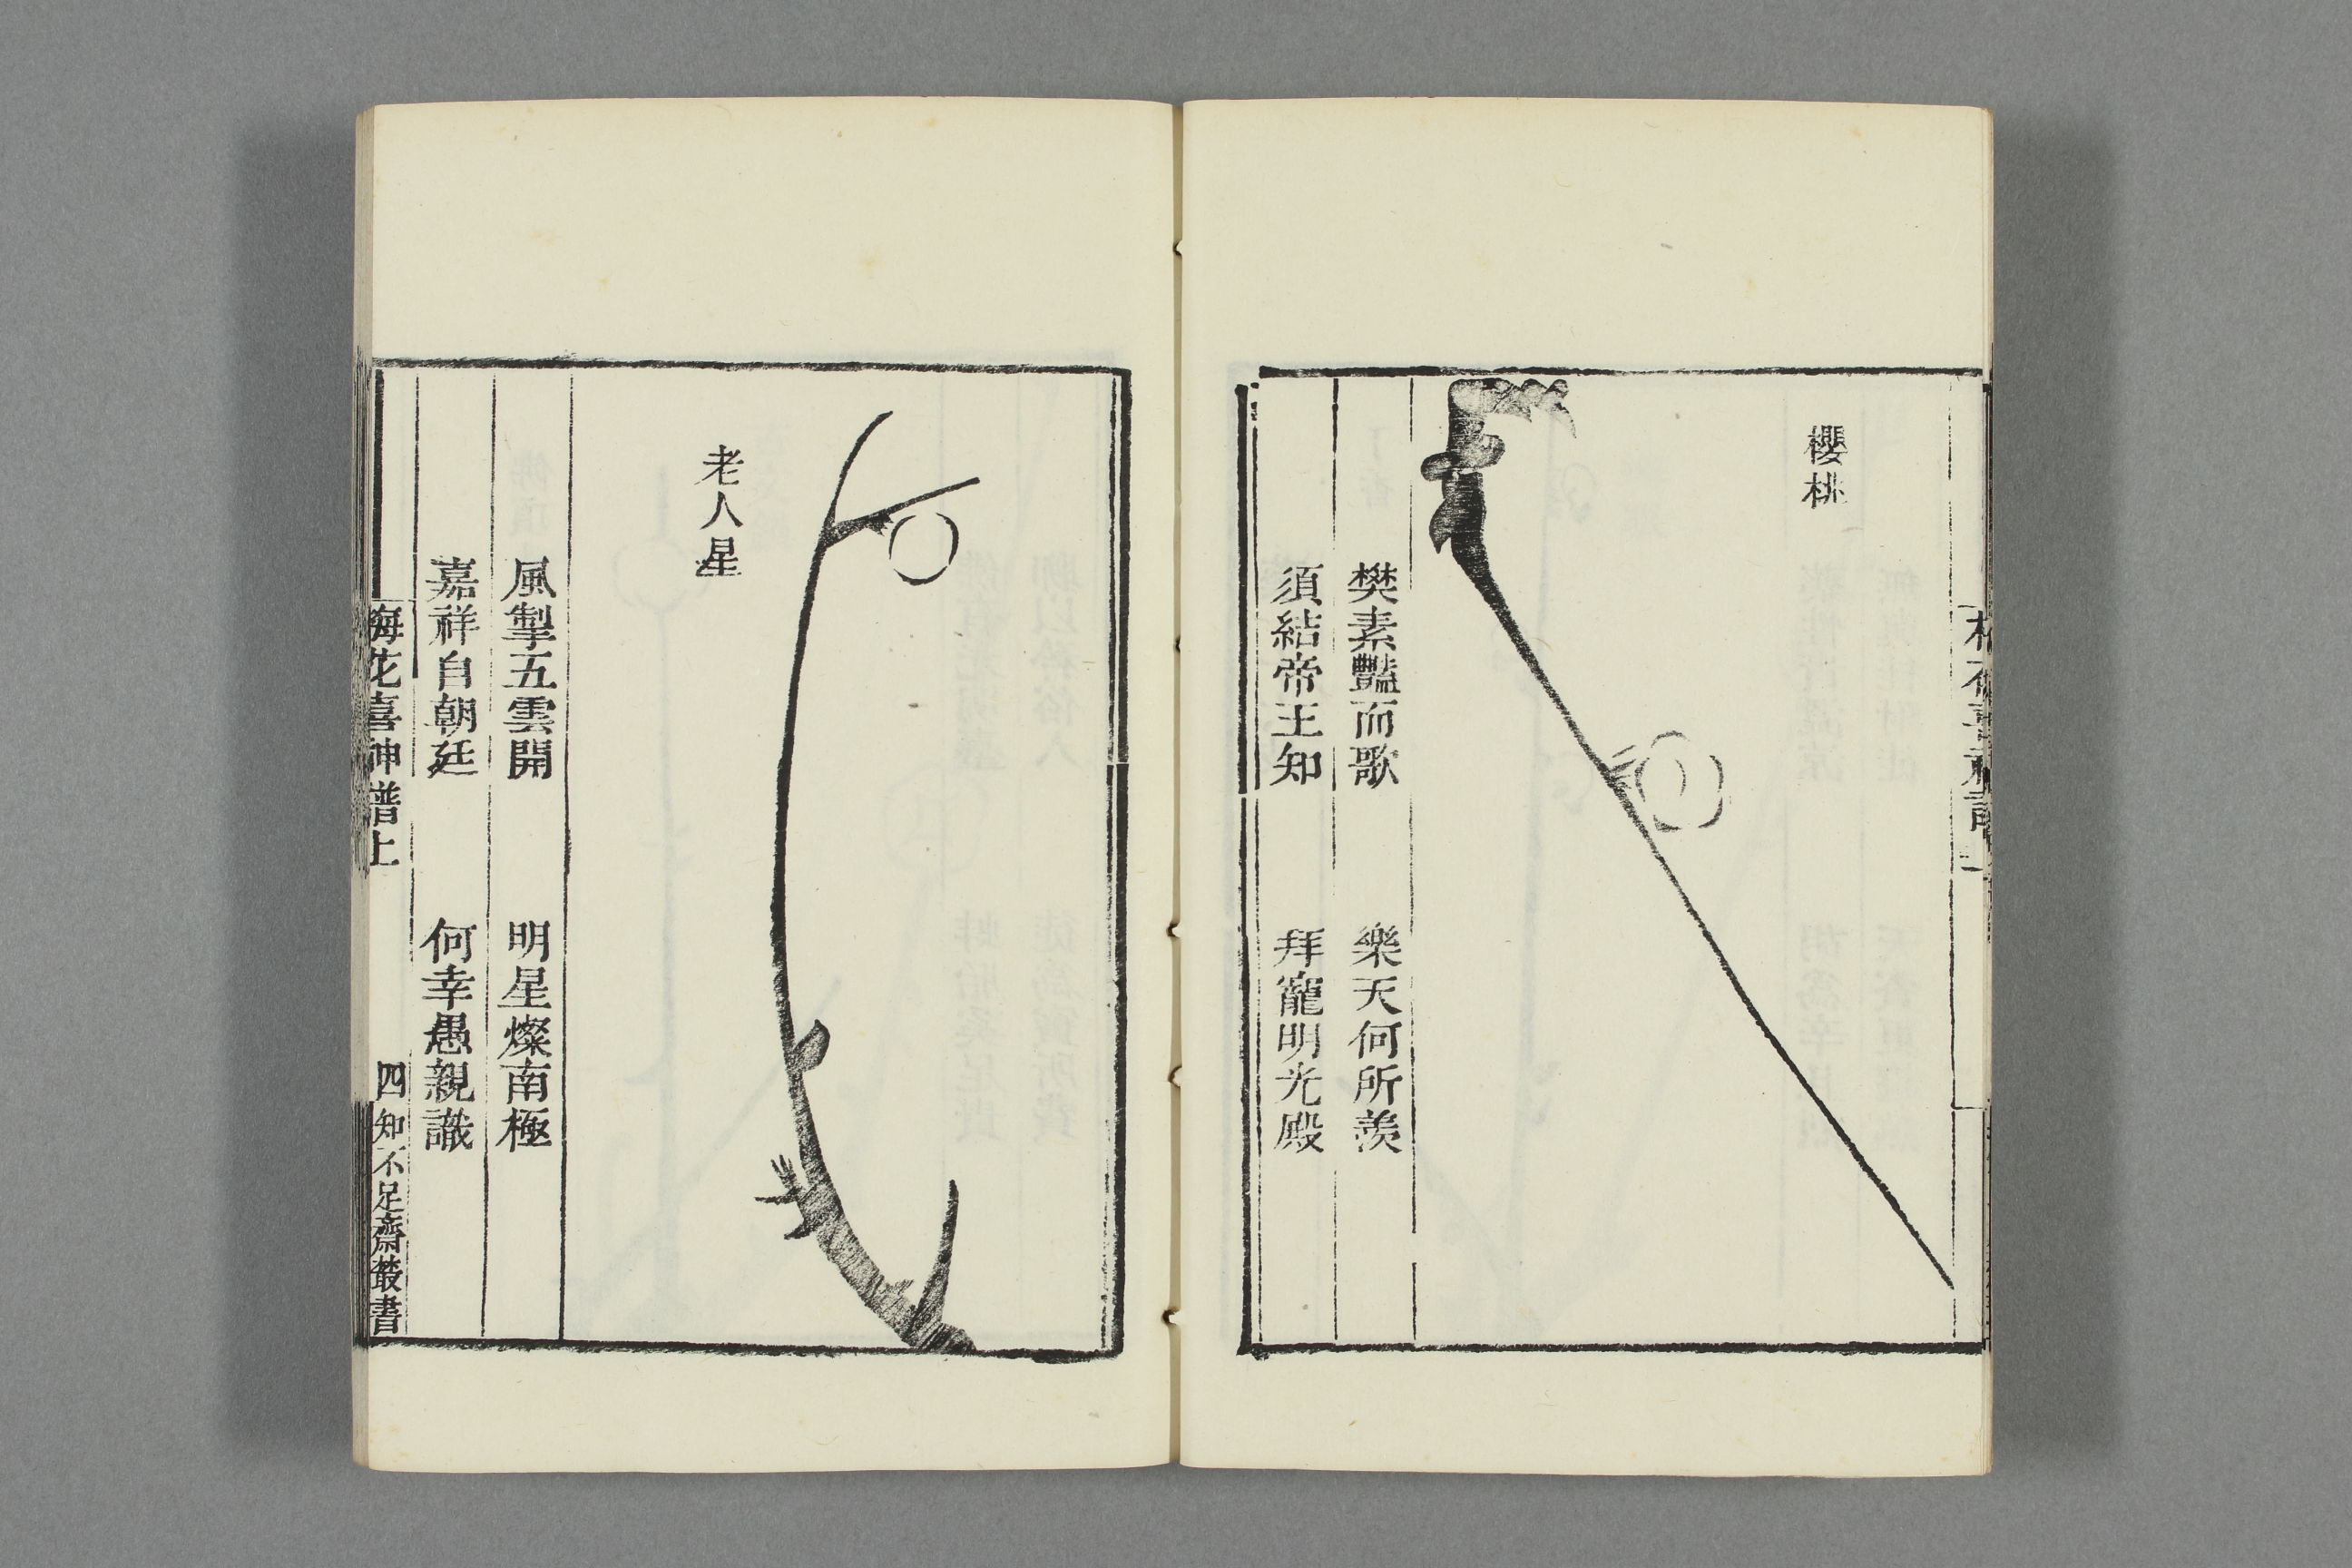 櫻桃
樊素豔而歌　樂天何所羨
須結帝王知　拜寵明光殿
老人星
風掣五雲開　明星燦南極
嘉祥自朝廷　何幸愚親識
梅花喜神譜上　四　知不足齋叢書